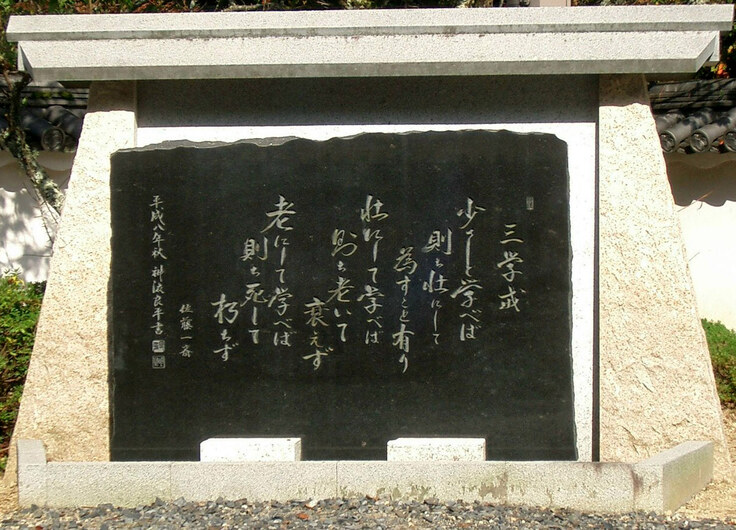 三学戒
少くして学べば
則ち壮にして
為すこと有り
壮にして学べば
則ち老いて
衰えず
老にして学べば
則ち死して
朽ちず
佐藤一斎
平成八年秋 良平書